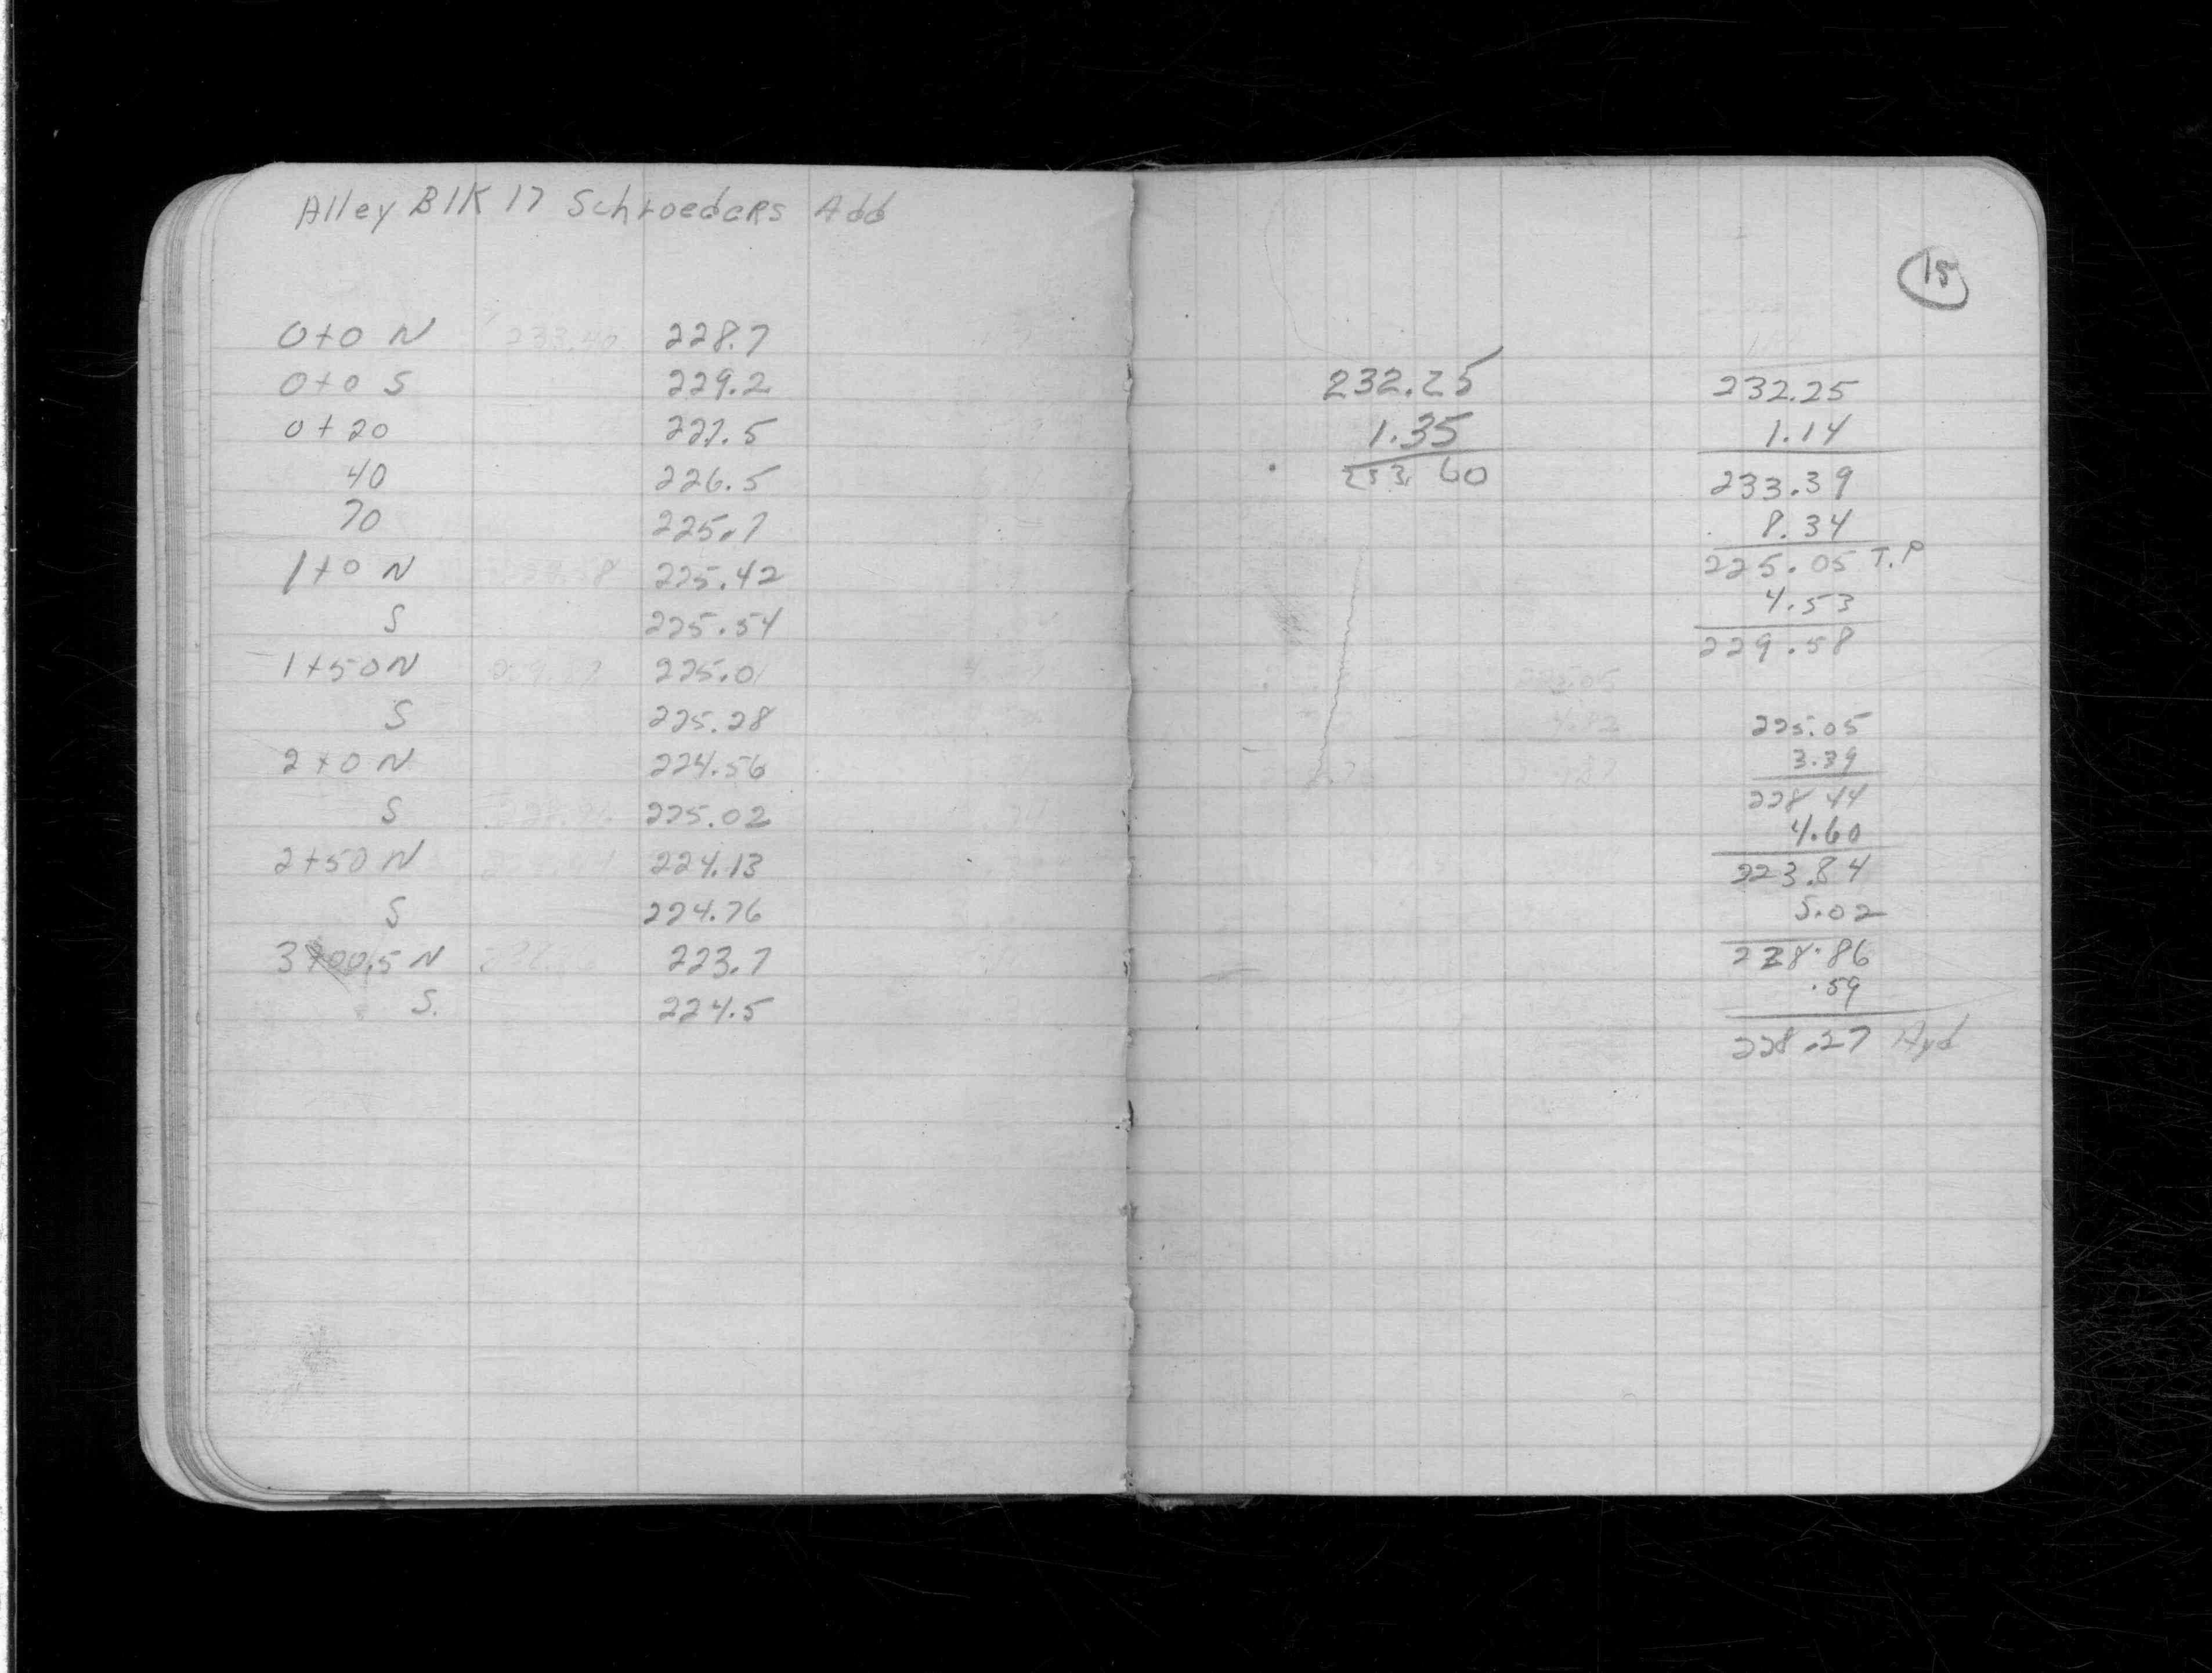 Alley Blk 17 Schroeders Add
0+0 N 233.40 228.7
0+0 S 229.2
0+20 227.5
40 226.5
70 225.7
1+0 N 225.42
S 225.54
1+50 N 225.01
S 225.28
2+0 N 224.56
S 225.02
2+50 N 224.13
S 224.76
3+00.5 N 223.7
S. 224.5
15
232.25
1.35
233.60
232.25
1.14
233.39
8.34
225.05 T.P
4.53
229.58
225.05
4.82
225.05
3.39
228.44
4.60
223.84
5.02
228.86
.59
228.27 Hyd